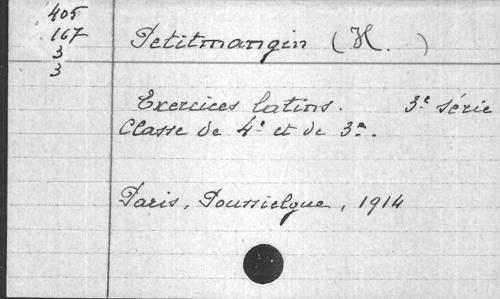 405
167
3
3
Petitmangin (H. )
Exercices latins. 3e série
Classe de 4e et de 3e.
Paris, Poussielgue, 1914